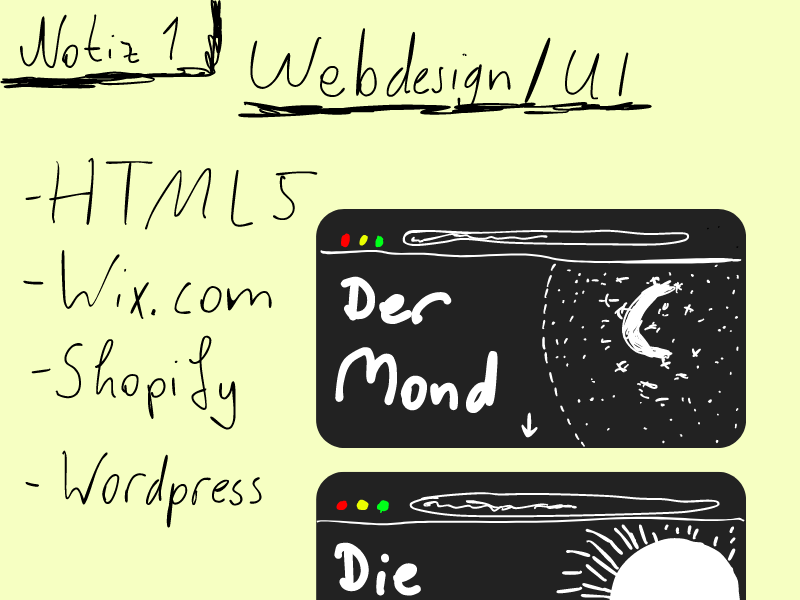 Notiz 1
Webdesign/UI
- HTML5
- Wix.com
- Shopify
- Wordpress
Der
Mond
Die